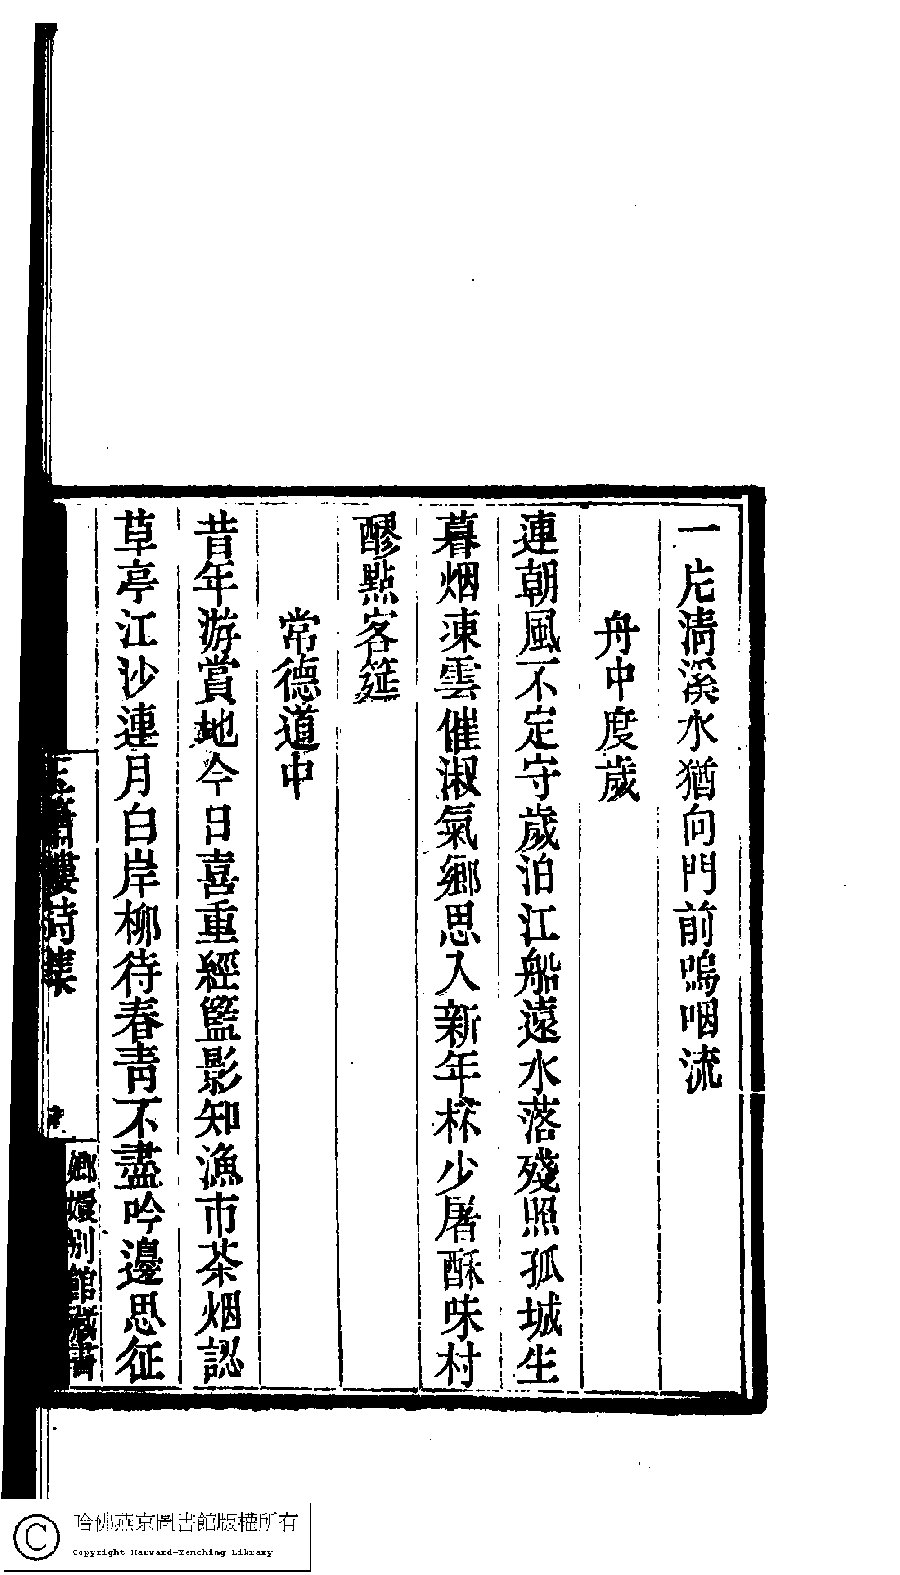 一片清溪水猶向門前嗚咽流
舟中度歲
連朝風不定守歲泊江船遠水落殘照孤城生
暮烟凍雲催淑氣鄉思入新年杯少屠酥味村
醪點客筵
常德道中
昔年游賞地今日喜重經籃影知漁市茶烟認
草亭江沙連月白岸柳待春青不盡吟邊思征
玉簫樓詩集
嫏嬛別館藏書
哈佛燕京圖書館版權所有
Copyright Harvard-Yenching Library